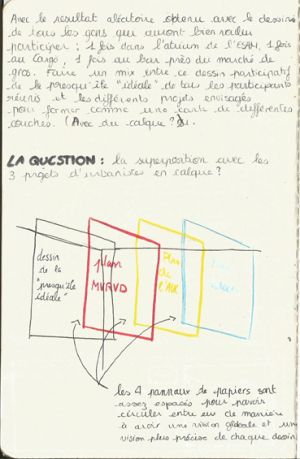 Avec le résultat aléatoire obtenu avec le dessin
de tous les gens qui auront bien voulu
participer : 1 fois dans l'atrium de l'ESAM, 1 fois
au Cargo, 1 fois au bar près du marché de
gros. Faire un mix entre ce dessin participatif
de la presqu'île "idéale" de tous les participants
réunis et les différents projets envisagés
pour former comme une carte de différentes
couches. (Avec du calque ?)
LA QUESTION : la superposition avec les
3 projets d'urbanistes en calque ?
dessin
de la
"presqu'île
idéale"
plan
MVRVD
Plan
de
l'AUC
les 4 panneaux de papiers sont
assez espacés pour pouvoir
circuler entre eux de manière
à avoir une vision globale et une
vision plus précise de chaque dessin